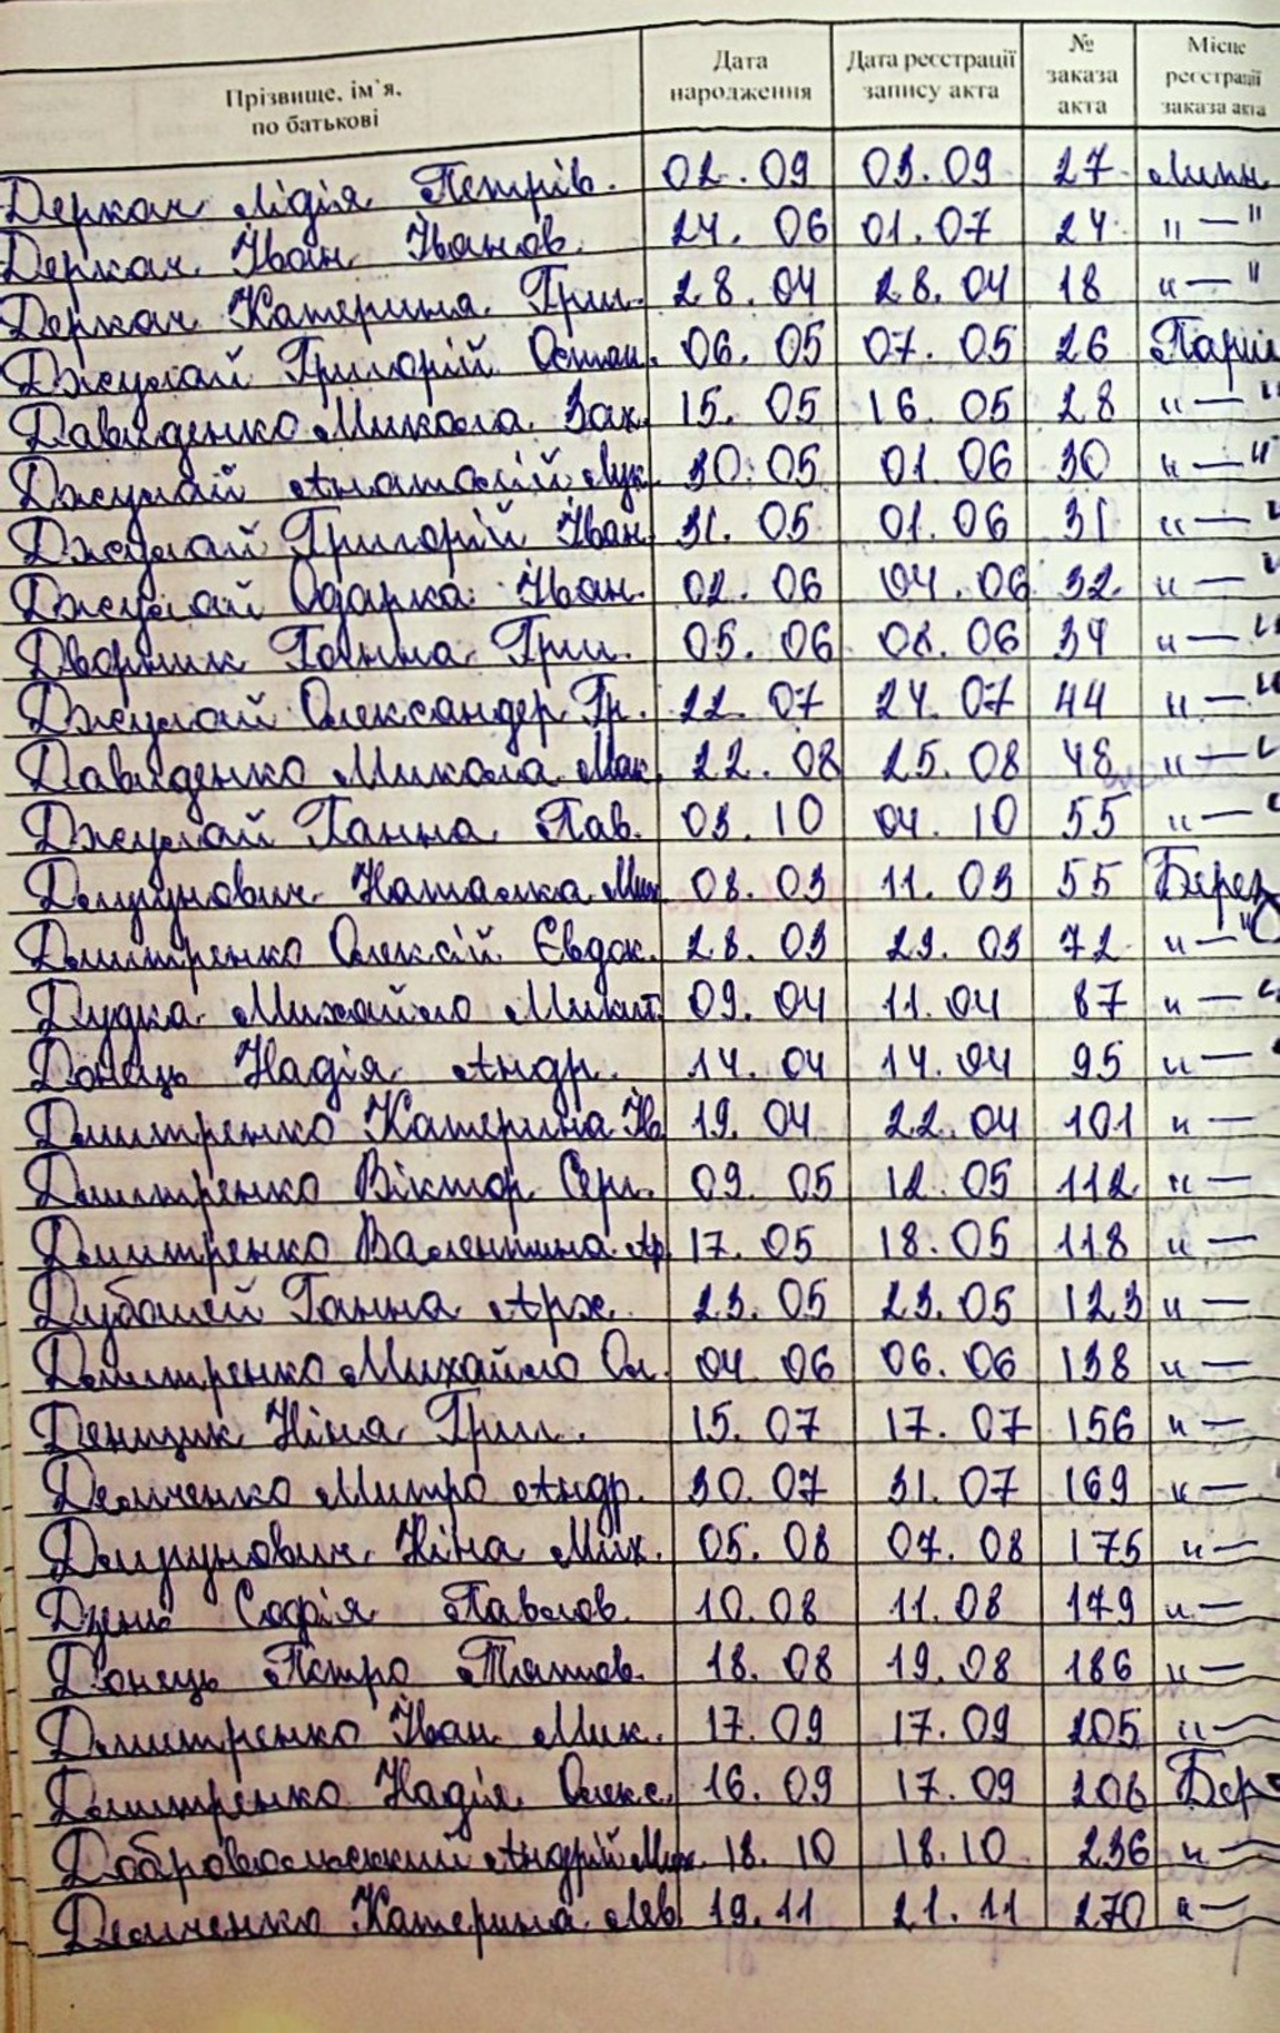 Прізвище, ім'я, по батькові Дата народження Дата реєстрації запису акта № заказа акта Місце реєстрації заказа акта
Деркач Лідія Петрів. 02.09 03.09 27
Деркач Іван Іванов. 24.06 01.07 24 "—"
Деркач Катерина Гри. 28.04 28.04 18 "—"
Джулай Григорій Остап. 06.05 07.05 26
Давиденко Микола Зах. 15.05 16.05 28 "—"
Джулай Анатолій Лук. 30.05 01.06 30 "—"
Джулай Григорій Іван. 31.05 01.06 31 "—"
Джулай Одарка Іван. 02.06 04.06 32 "—"
Дворник Ганна Гри. 05.06 08.06 34 "—"
Джулай Олександер Гр. 22.07 24.07 44 "—"
Давиденко Микола Мак. 22.08 25.08 48 "—"
Джулай Ганна Пав. 03.10 04.10 55 "—"
Наталка Мих 08.03 11.03 55 Берез
Дмитренко Олексій Євдок. 28.03 29.03 72 "—"
Дудка Михайло Микит. 09.04 11.04 87 "—"
Донець Надія Андр. 14.04 14.04 95 "—
Дмитренко Катерина Ів. 19.04 22.04 101 "—
Дмитренко Віктор Сергі. 09.05 12.05 112 "—
Дмитренко Валентина Ар. 17.05 18.05 118 "—
Ганна Арх. 23.05 23.05 123 "—
Дмитренко Михайло Ол. 04.06 06.06 138 "—
Денщик Ніна Гри. 15.07 17.07 156 "—
Демченко Митро Андр. 30.07 31.07 169 "—
Ніна Мих. 05.08 07.08 175 "—
Софія Павлов. 10.08 11.08 179 "—
Донець Петро 18.08 19.08 186 "—
Дмитренко Іван Мик. 17.09 17.09 205 "—
Дмитренко Надія Олекс. 16.09 17.09 206 Бер
Добровольський Андрій Мих. 18.10 18.10 236 "—
Демченко Катерина Лев. 19.11 21.11 270 "—